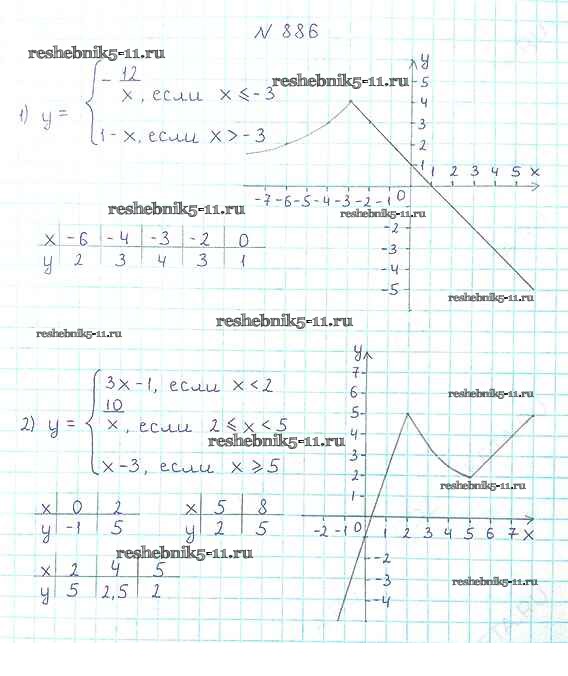 N 886
reshebnik5-11.ru
1) y = { -12/x, если x ⩽ -3
1 - x, если x > -3
reshebnik5-11.ru
y
5
4
3
2
1
1 2 3 4 5 x
-7 -6 -5 -4 -3 -2 -1 0
-2
-3
-4
-5
reshebnik5-11.ru
reshebnik5-11.ru
x -6 -4 -3 -2 0
y 2 3 4 3 1
reshebnik5-11.ru
reshebnik5-11.ru
reshebnik5-11.ru
2) y = { 3x - 1, если x < 2
10/x, если 2 ⩽ x < 5
x - 3, если x ⩾ 5
reshebnik5-11.ru
x 0 2
y -1 5
x 5 8
y 2 5
reshebnik5-11.ru
x 2 4 5
y 5 2,5 2
y
7
6
5
4
3
2
1
-2 -1 0 1 2 3 4 5 6 7 x
-2
-3
-4
reshebnik5-11.ru
reshebnik5-11.ru
reshebnik5-11.ru